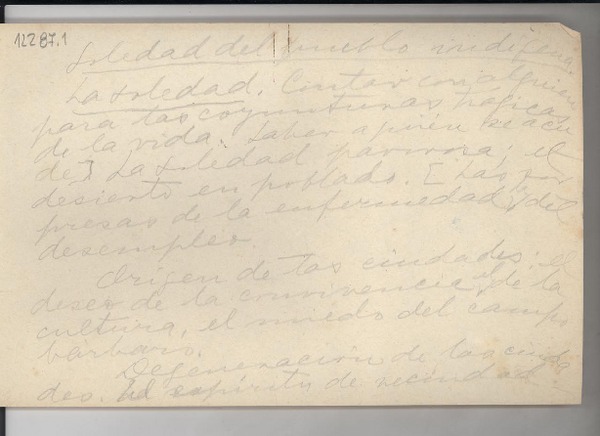 12287.1
Soledad del pueblo indígena.
La soledad. Contar con alguien
para las coyunturas trágicas
de la vida. Saber a quién se acu
de] La soledad pavorosa; el
desierto en poblado. [Las sor
presas de la enfermedad, del
desempleo.
Origen de las ciudades: el
deseo de la convivencia, de la
cultura, el miedo del campo
bárbaro.
Degeneración de las ciuda
des. El espíritu de vecindad